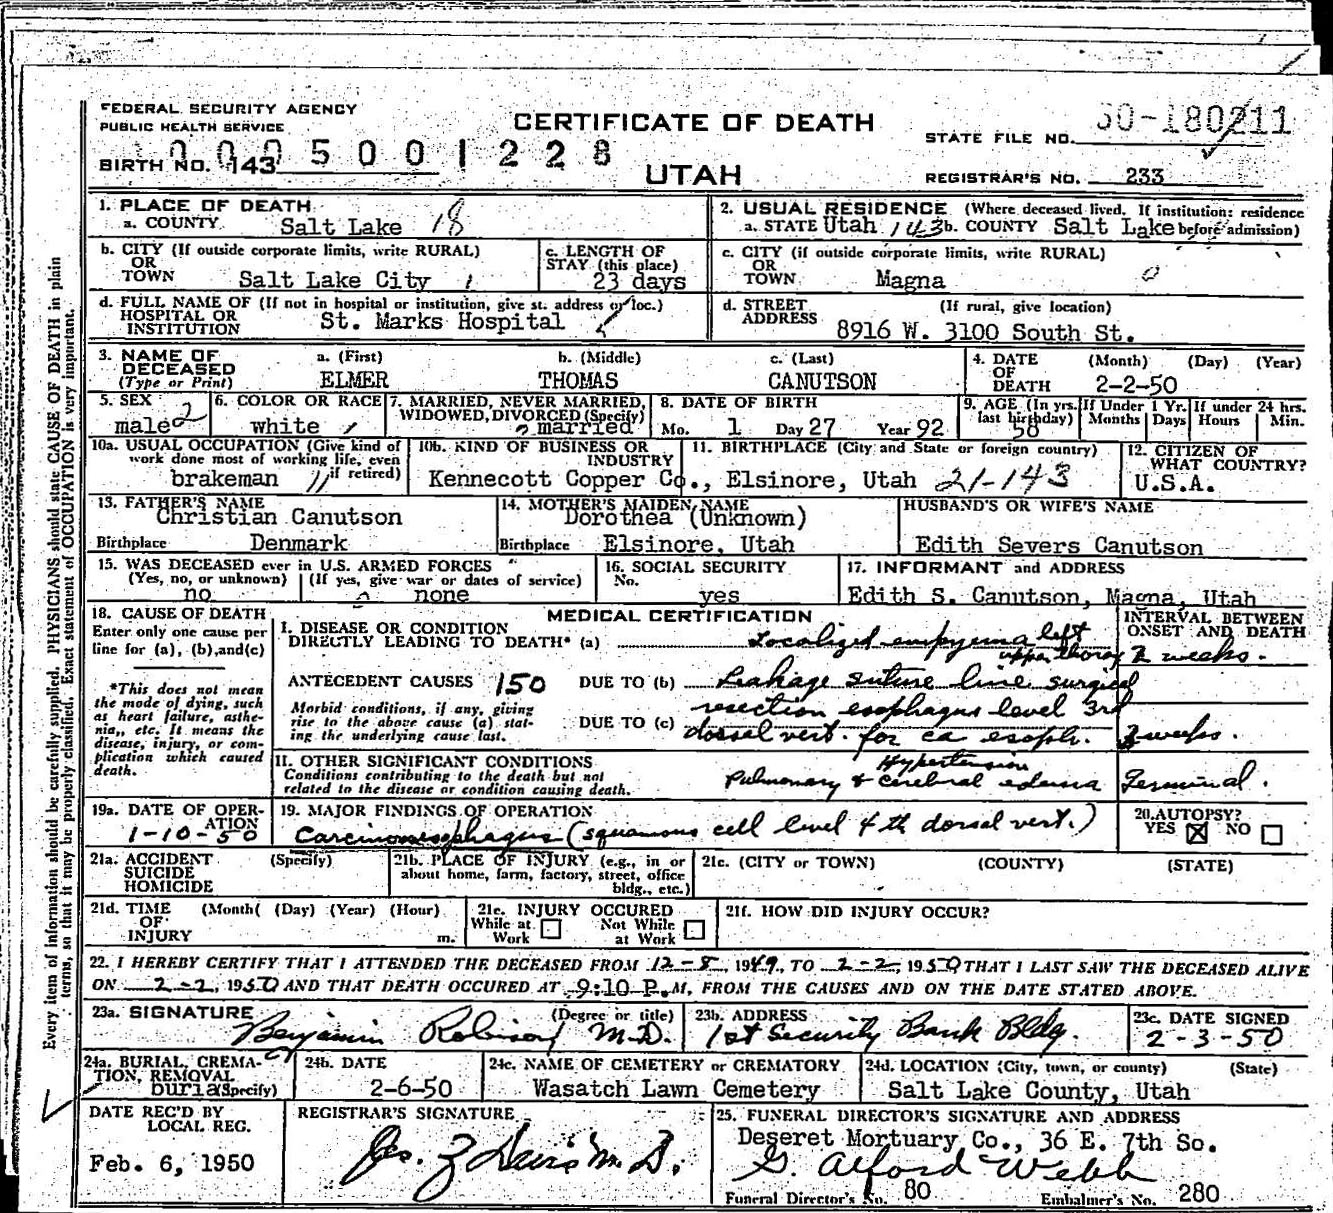 FEDERAL SECURITY AGENCY
PUBLIC HEALTH SERVICE
CERTIFICATE OF DEATH
STATE FILE NO. 50-180211
0005001228
BIRTH NO. 143
UTAH
REGISTRAR'S NO. 233
1. PLACE OF DEATH
a. COUNTY Salt Lake 18
2. USUAL RESIDENCE (Where deceased lived. If institution: residence before admission)
a. STATE Utah 143 b. COUNTY Salt Lake
b. CITY (If outside corporate limits, write RURAL)
OR
TOWN Salt Lake City 1
c. LENGTH OF
STAY (this place)
23 days
c. CITY (if outside corporate limits, write RURAL)
OR
TOWN Magna 0
d. FULL NAME OF (If not in hospital or institution, give st. address or loc.)
HOSPITAL OR
INSTITUTION St. Marks Hospital
d. STREET (If rural, give location)
ADDRESS 8916 W. 3100 South St.
3. NAME OF DECEASED
(Type or Print)
a. (First) b. (Middle) c. (Last)
ELMER THOMAS CANUTSON
4. DATE OF DEATH (Month) (Day) (Year)
2-2-50
5. SEX
male 2
6. COLOR OR RACE
white 1
7. MARRIED, NEVER MARRIED,
WIDOWED, DIVORCED (Specify)
2 married
8. DATE OF BIRTH
Mo. 1 Day 27 Year 92
9. AGE (In yrs. last birthday) If Under 1 Yr. If under 24 hrs.
58 Months Days Hours Min.
10a. USUAL OCCUPATION (Give kind of
work done most of working life, even
if retired)
brakeman 11
10b. KIND OF BUSINESS OR
INDUSTRY
Kennecott Copper Co.,
11. BIRTHPLACE (City and State or foreign country)
Elsinore, Utah 21-143
12. CITIZEN OF
WHAT COUNTRY?
U.S.A.
13. FATHER'S NAME
Christian Canutson
Birthplace Denmark
14. MOTHER'S MAIDEN NAME
Dorothea (Unknown)
Birthplace Elsinore, Utah
HUSBAND'S OR WIFE'S NAME
Edith Severs Canutson
15. WAS DECEASED ever in U.S. ARMED FORCES
(Yes, no, or unknown) (If yes, give war or dates of service)
no none
16. SOCIAL SECURITY
No. yes
17. INFORMANT and ADDRESS
Edith S. Canutson, Magna, Utah
18. CAUSE OF DEATH
Enter only one cause per
line for (a), (b), and (c)
*This does not mean
the mode of dying, such
as heart failure, asthe-
nia,, etc. It means the
disease, injury, or com-
plication which caused
death.
MEDICAL CERTIFICATION
INTERVAL BETWEEN
ONSET AND DEATH
I. DISEASE OR CONDITION
DIRECTLY LEADING TO DEATH* (a) Localized empyema left
upper thorax 2 weeks.
ANTECEDENT CAUSES 150 DUE TO (b) Leakage suture line surgical
Morbid conditions, if any, giving
rise to the above cause (a) stat-
ing the underlying cause last.
resection esophagus level 3rd
DUE TO (c) dorsal vert. for ca esoph. 3 weeks.
II. OTHER SIGNIFICANT CONDITIONS
Conditions contributing to the death but not
related to the disease or condition causing death.
Hypertension
Pulmonary & cerebral edema Terminal.
19a. DATE OF OPER-
ATION
1-10-50
19. MAJOR FINDINGS OF OPERATION
Carcinoma esophagus (squamous cell level 4th dorsal vert.)
20. AUTOPSY?
YES ☒ NO ☐
21a. ACCIDENT (Specify)
SUICIDE
HOMICIDE
21b. PLACE OF INJURY (e.g., in or
about home, farm, factory, street, office
bldg., etc.)
21c. (CITY or TOWN) (COUNTY) (STATE)
21d. TIME (Month( (Day) (Year) (Hour)
OF
INJURY m.
21e. INJURY OCCURED
While at Work ☐ Not While at Work ☐
21f. HOW DID INJURY OCCUR?
22. I HEREBY CERTIFY THAT I ATTENDED THE DECEASED FROM 12-8, 1949, TO 2-2, 1950 THAT I LAST SAW THE DECEASED ALIVE
ON 2-2, 1950 AND THAT DEATH OCCURED AT 9:10 P.M, FROM THE CAUSES AND ON THE DATE STATED ABOVE.
23a. SIGNATURE (Degree or title)
Benjamin Robinson M.D.
23b. ADDRESS
1st Security Bank Bldg.
23c. DATE SIGNED
2-3-50
24a. BURIAL, CREMA-
TION, REMOVAL
burial (Specify)
24b. DATE
2-6-50
24c. NAME OF CEMETERY or CREMATORY
Wasatch Lawn Cemetery
24d. LOCATION (City, town, or county) (State)
Salt Lake County, Utah
DATE REC'D BY
LOCAL REG.
Feb. 6, 1950
REGISTRAR'S SIGNATURE
Jos. Z Davis M.D.
25. FUNERAL DIRECTOR'S SIGNATURE AND ADDRESS
Deseret Mortuary Co., 36 E. 7th So.
G. Alford Webb
Funeral Director's No. 80 Embalmer's No. 280
Every item of information should be carefully supplied. PHYSICIANS should state CAUSE OF DEATH in plain
terms, so that it may be properly classified. Exact statement of OCCUPATION is very important.